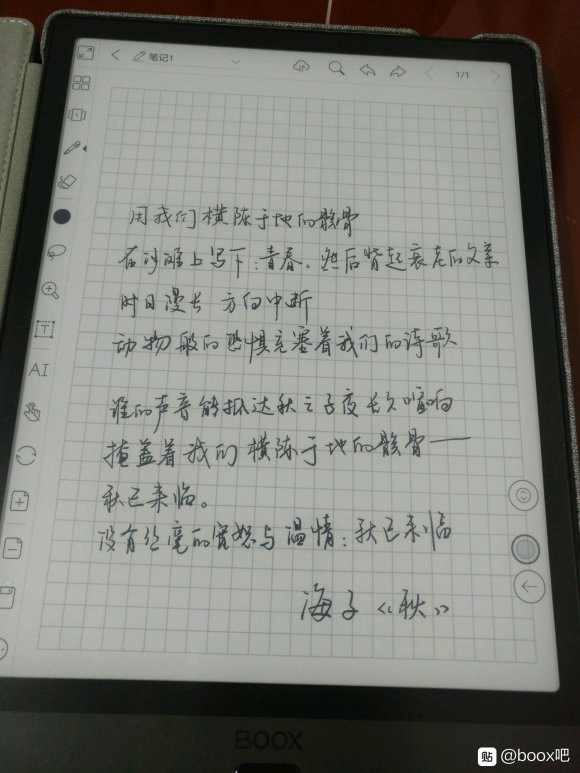 笔记1
1/1
用我们横陈于地的骸骨
在沙滩上写下:青春。然后背起衰老的父亲
时日漫长 方向中断
动物般的恐惧充塞着我们的诗歌
谁的声音能抵达秋之子夜 长久喧响
掩盖着我们横陈于地的骸骨——
秋已来临。
没有丝毫的宽恕与温情:秋已来临
海子《秋》
T
AI
BOOX
贴 @boox吧